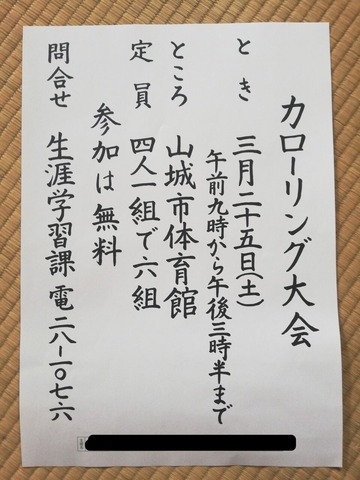 カローリング大会
とき 三月二十五日(土)
午前九時から午後三時半まで
ところ 山城市体育館
定員 四人一組で六組
参加は無料
問合せ 生涯学習課 電二八-一〇七六